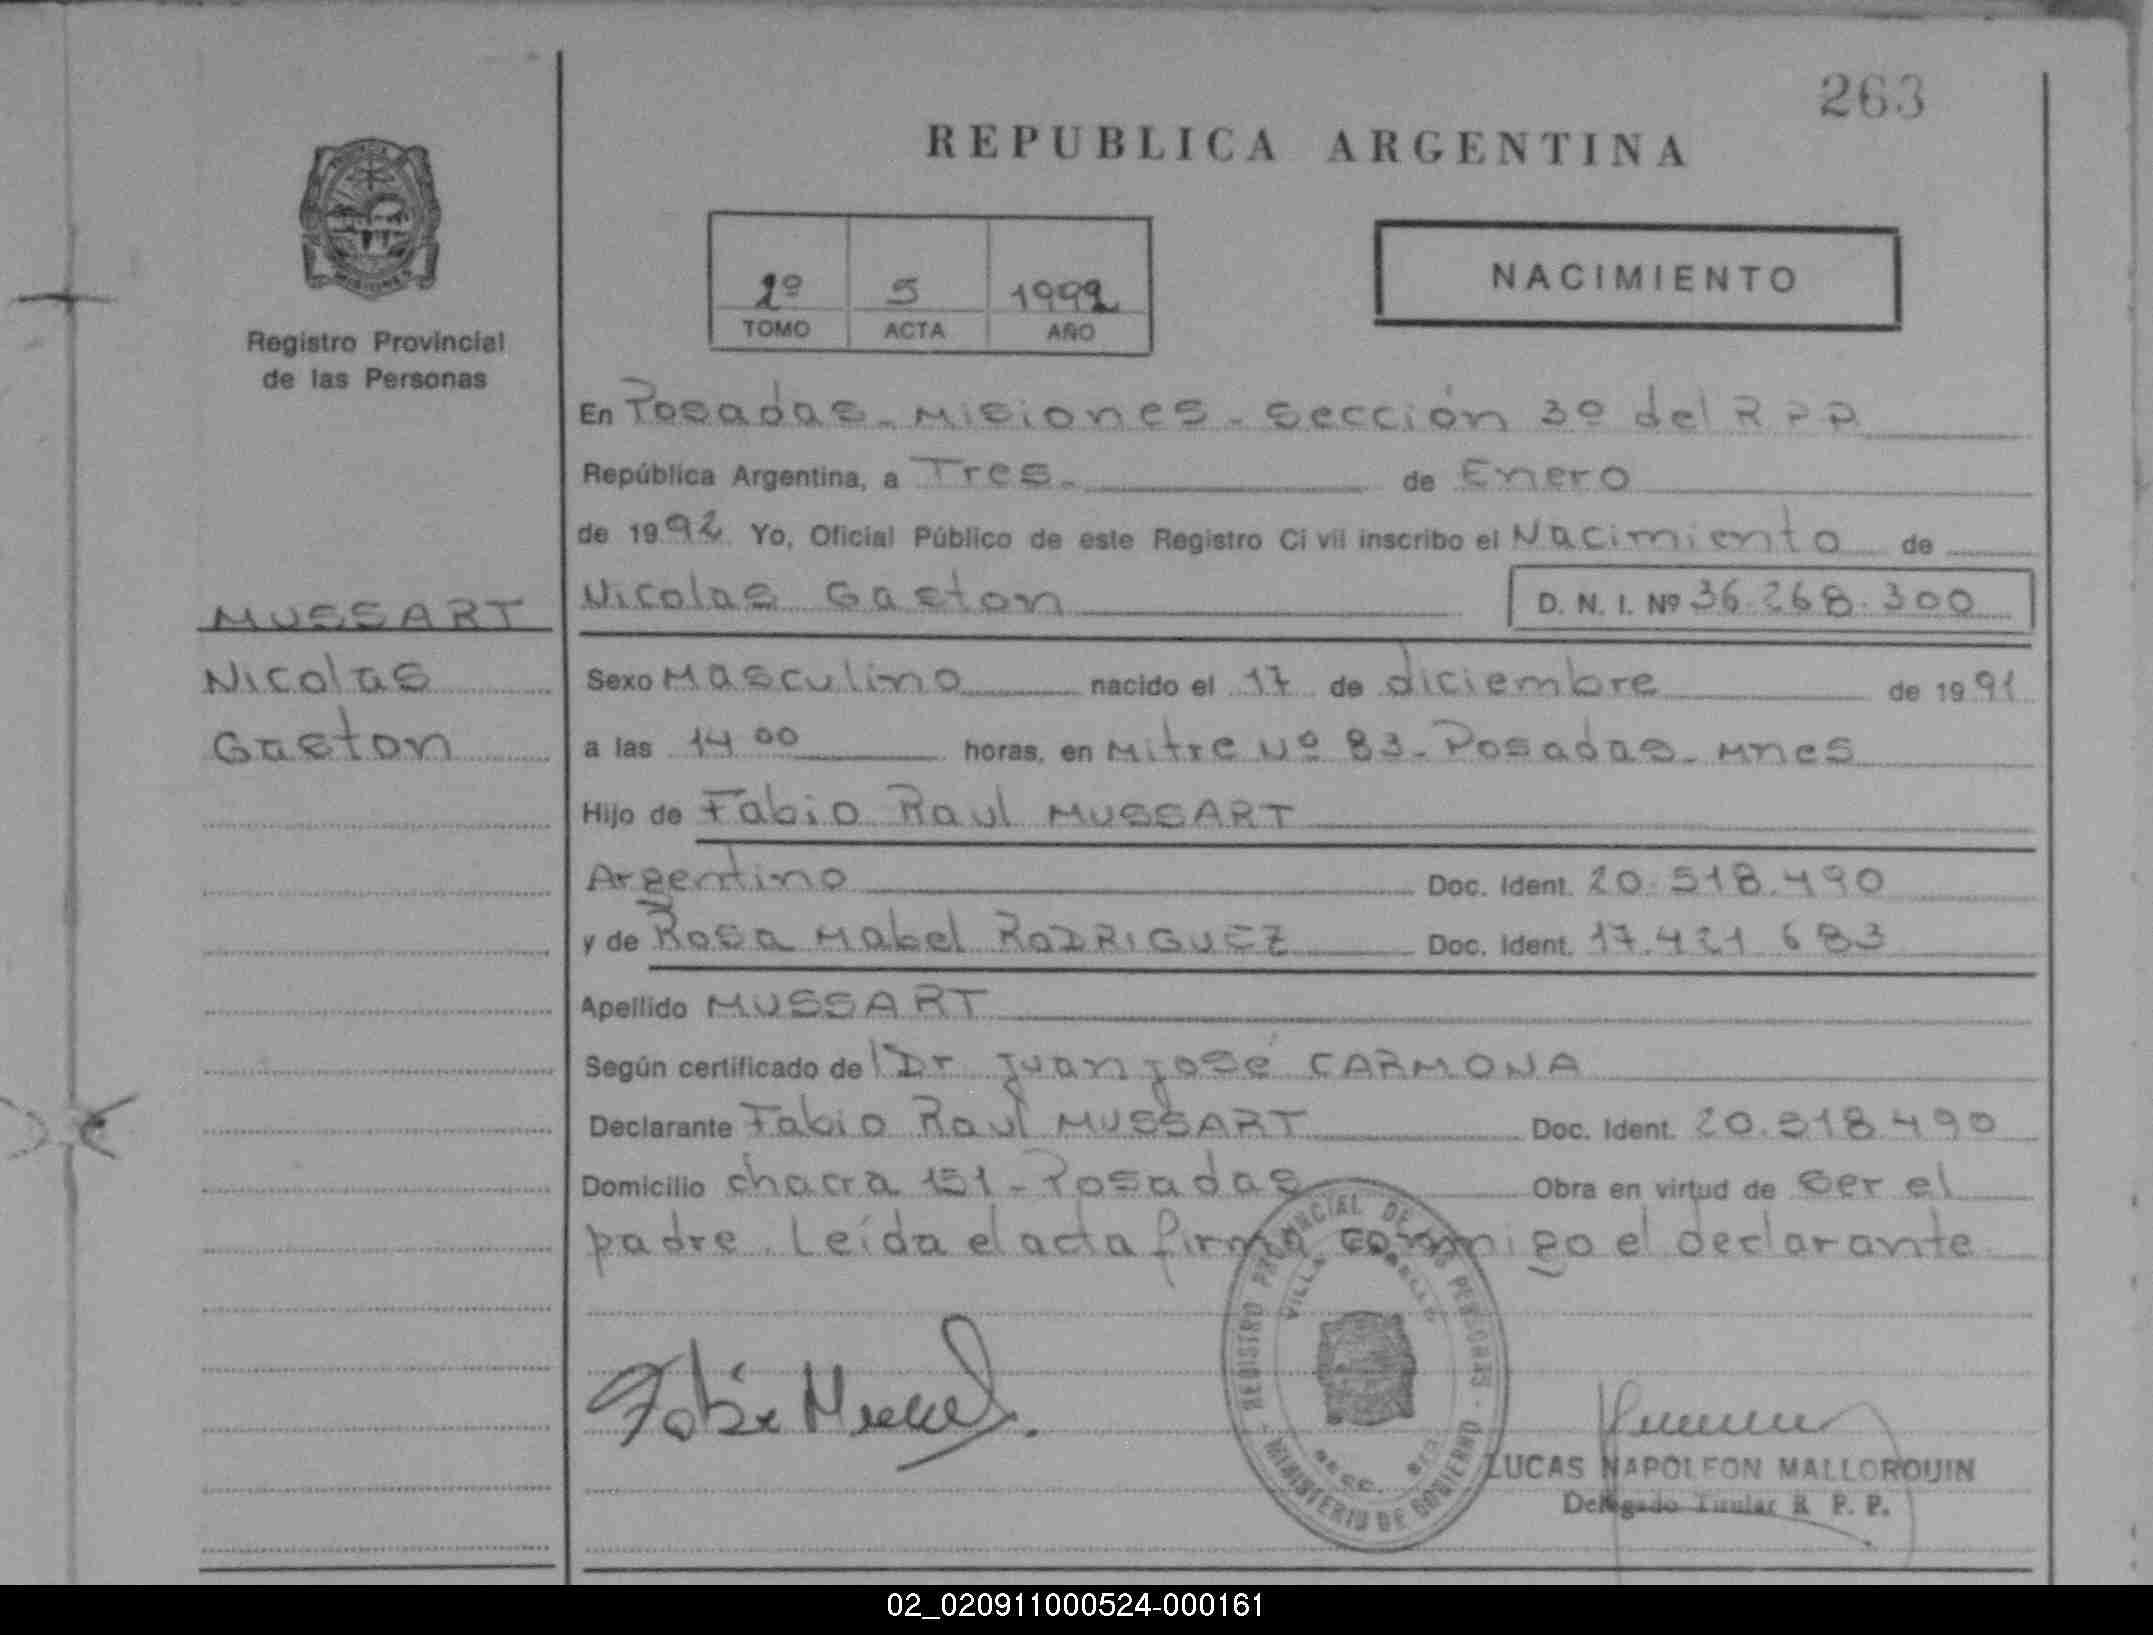 263
REPUBLICA ARGENTINA
1º 5 1992
TOMO ACTA AÑO
NACIMIENTO
Registro Provincial
de las Personas
En Posadas - Misiones - Sección 3º del R P P
República Argentina, a Tres - de Enero
de 1992 Yo, Oficial Público de este Registro Civil inscribo el Nacimiento de
Nicolas Gaston D. N. I. Nº 36.268.300
MUSSART
Nicolas
Gaston
Sexo Masculino nacido el 17 de diciembre de 1991
a las 14 00 horas, en Mitre Nº 83 - Posadas - Mnes
Hijo de Fabio Raul MUSSART
Argentino Doc. Ident. 20.518.490
y de Rosa Mabel RODRIGUEZ Doc. Ident. 17.421 683
Apellido MUSSART
Según certificado de Dr Juan José CARMONA
Declarante Fabio Raul MUSSART Doc. Ident. 20.518.490
Domicilio chacra 151 - Posadas Obra en virtud de ser el
padre. Leída el acta firma conmigo el declarante
REGISTRO PROVINCIAL DE LAS PERSONAS
VILLA
MINISTERIO DE GOBIERNO
LUCAS NAPOLEON MALLORQUIN
Delegado Titular R P. P.
02_020911000524-000161